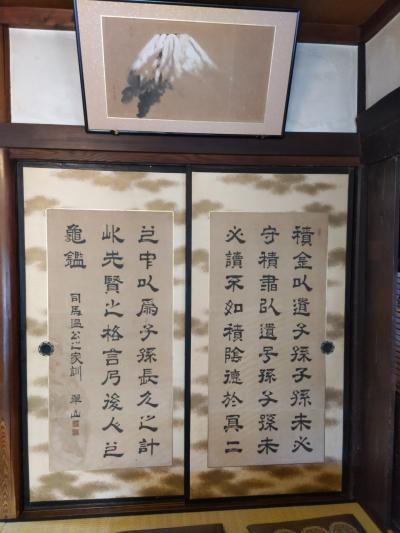 積金以遺子孫子孫未必
守積書以遺子孫子孫未
必讀不如積陰德於冥二
之中以爲子孫長久之計
此先賢之格言乃後人之
龜鑑
司馬溫公之家訓